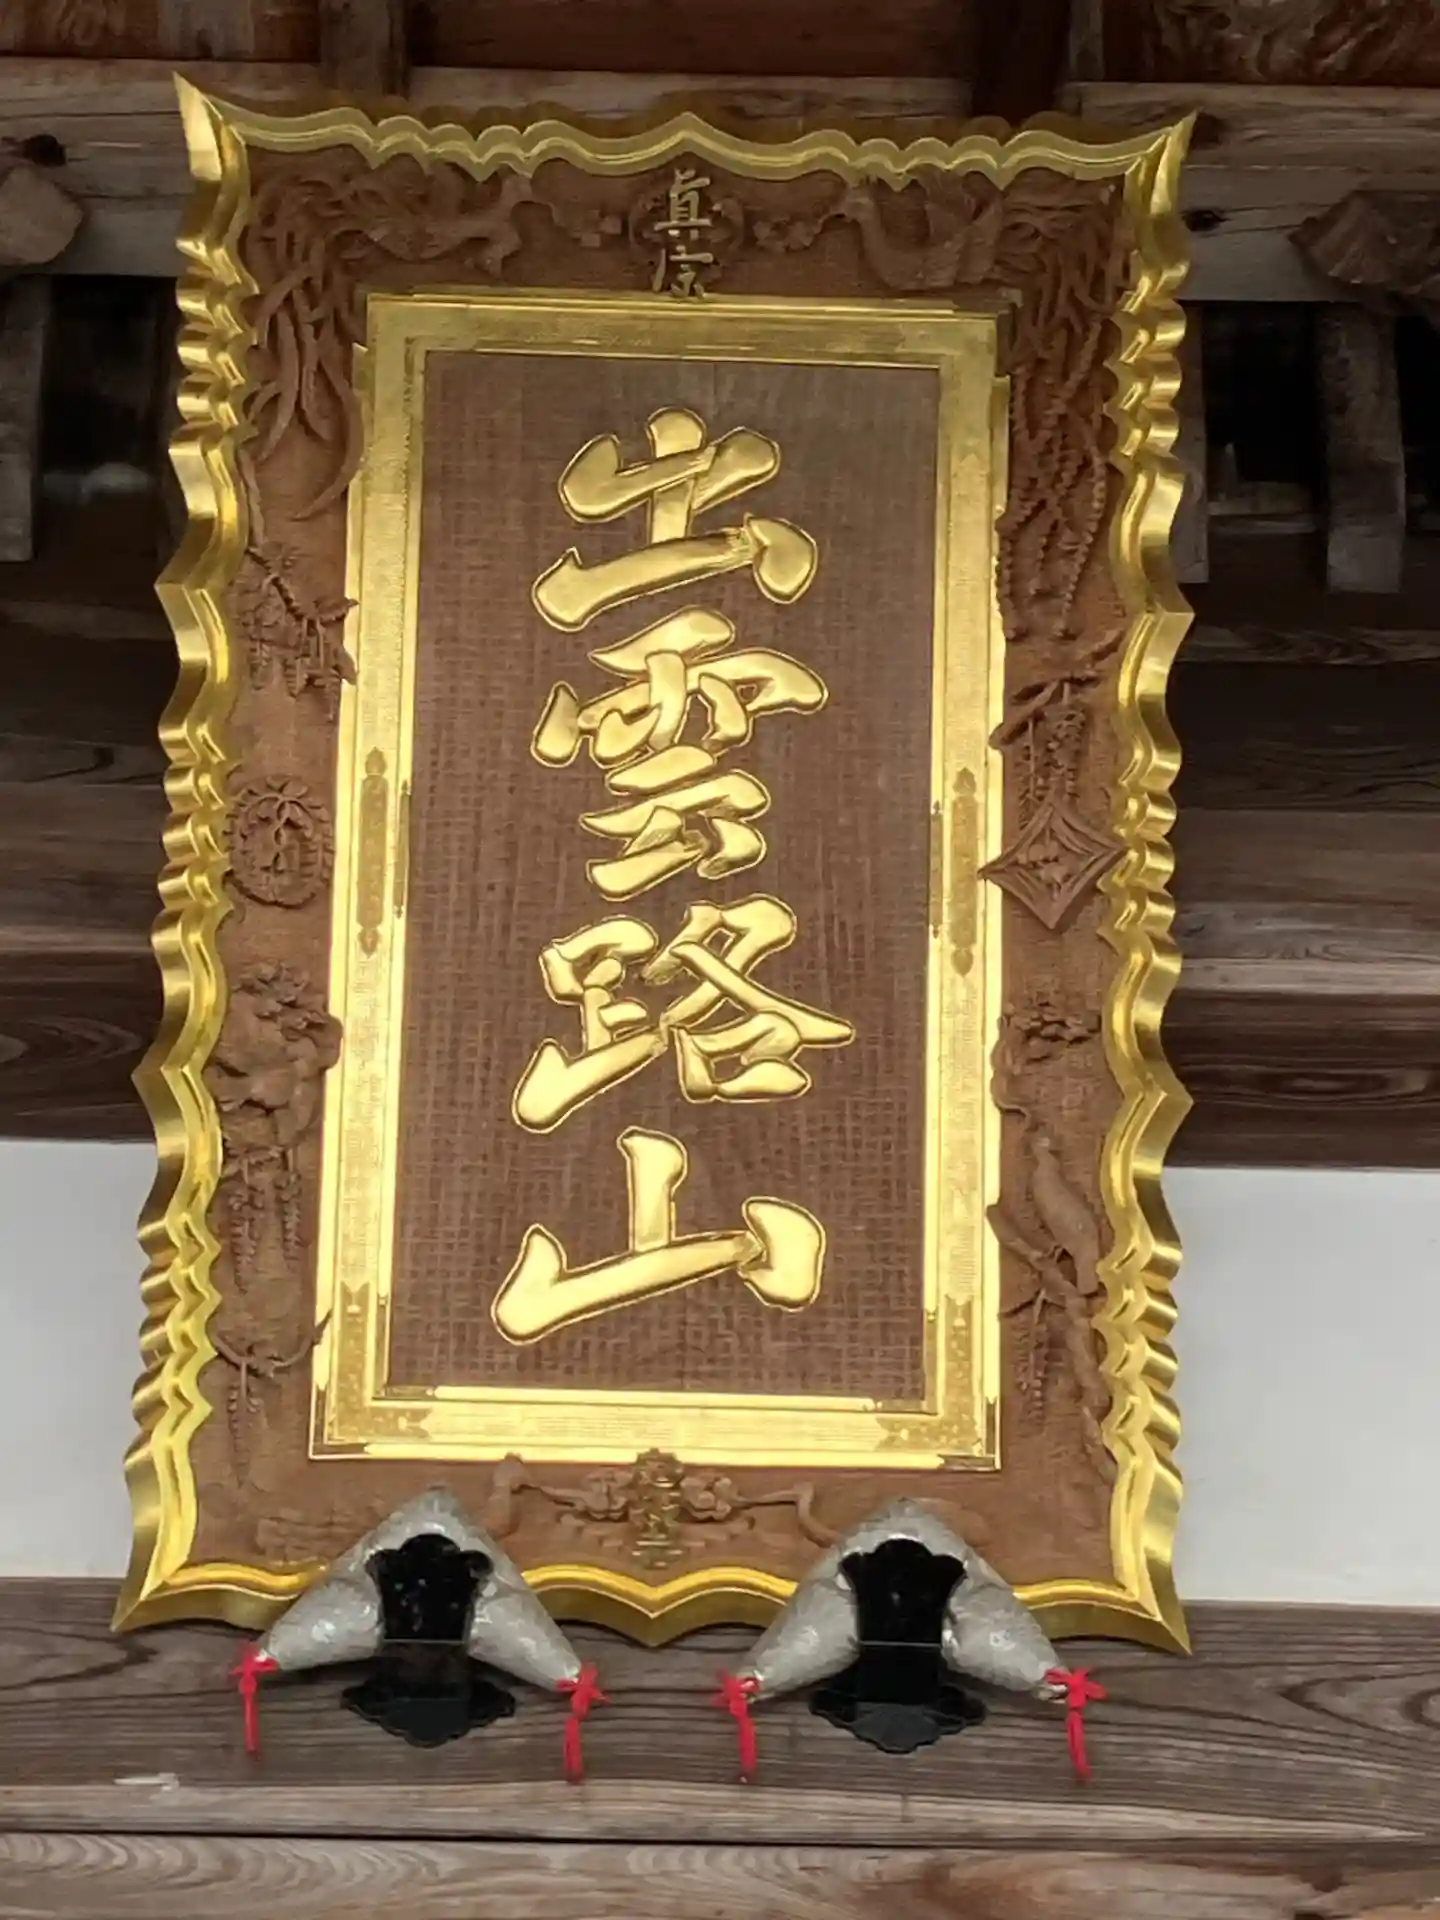 眞宗
出雲路山